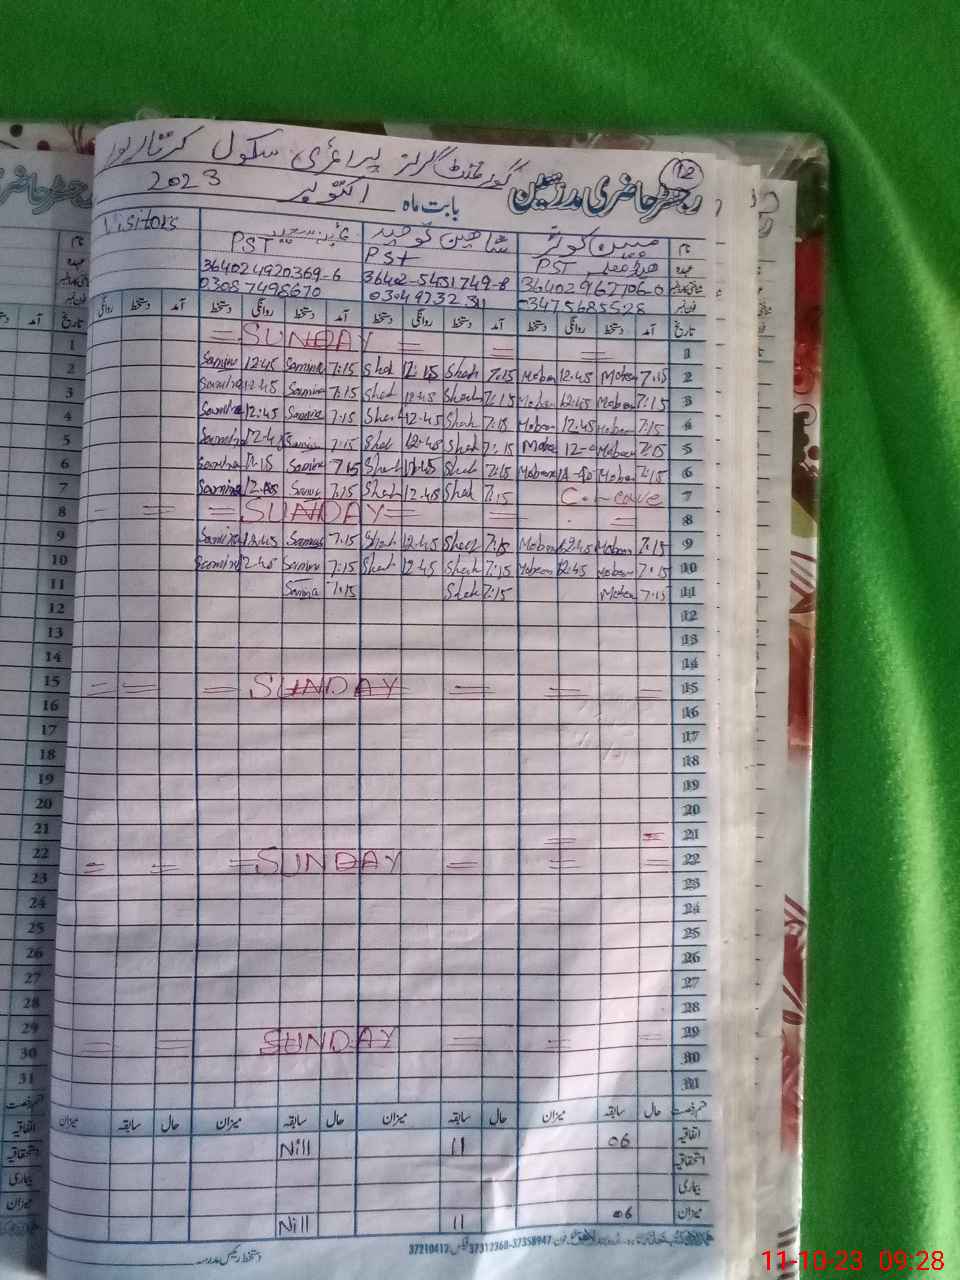 12
گورنمنٹ گرلز پرائمری سکول کرتارپور
رجسٹر حاضری مدرسین بابت ماہ اکتوبر 2023
نام مبین کوثر شاہین توحید Visitors
عہدہ PST PSt PST
36402962706-0 36402-5451749-8 364024920369-6
03475685528 0304 9732 311 03087498670
تاریخ آمد دستخط روانگی دستخط آمد دستخط روانگی دستخط آمد دستخط روانگی دستخط آمد دستخط روانگی
1 = SUNDAY = = =
2 7.15 Moben 12.45 Moben 7.15 Shah 12:15 Shah 7:15 Samina 12:45 Samina
3 7:15 Moben 12:45 Moben 7:15 Shah 12:45 Shah 7.15 Samina 12:45 Samina
4 7:15 Moben 12.45 Moben 7:15 Shah 12.45 Shah 7.15 Samina 12:45 Samina
5 7:15 Moben Moben 7:15 Shah 12:45 Shah 7:15 Samina Samina
6 7:15 Moben Moben 7:15 Shah 12:45 Shah 7:15 Samina 12:15 Samina
7 C.-eave 7:15 Shah 12.45 Shah 7:15 Samina 12.45 Samina
8 = SUNDAY = = =
9 7.15 Moben 12:45 Moben 7:15 Shah 12:45 Shah 7.15 Samina 12.45 Samina
10 7:15 Moben 12:45 Moben 7:15 Shah 12.45 Shah 7:15 Samina 12:45 Samina
11 7:15 Moben 7:15 Shah 7:15 Samina
12
13
14
15 = = = SUNDAY = = =
16
17
18
19
20
21 = =
22 = = = SUNDAY = = =
23
24
25
26
27
28
29 = = SUNDAY = = =
30
31
قسم رخصت حال سابقہ میزان حال سابقہ میزان حال سابقہ میزان حال سابقہ میزان
اتفاقیہ 06 11 Nill
استحقاقیہ
بیماری
میزان 06 11 Nill
دستخط رئیس مدرسہ
37210412 37312368-37358947
11-10-23 09:28